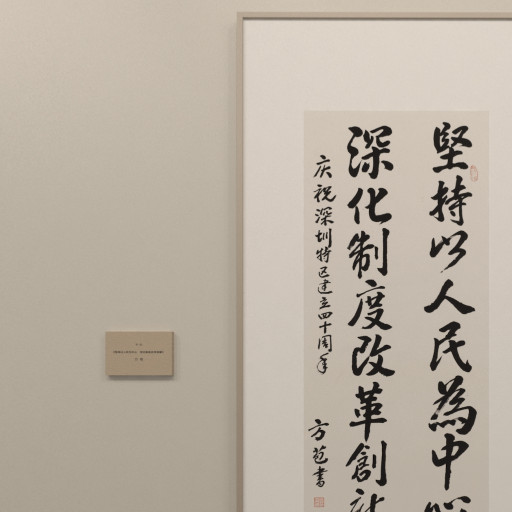 堅持以人民為中
深化制度改革創
庆祝深圳特区建立四十周年
方苞書